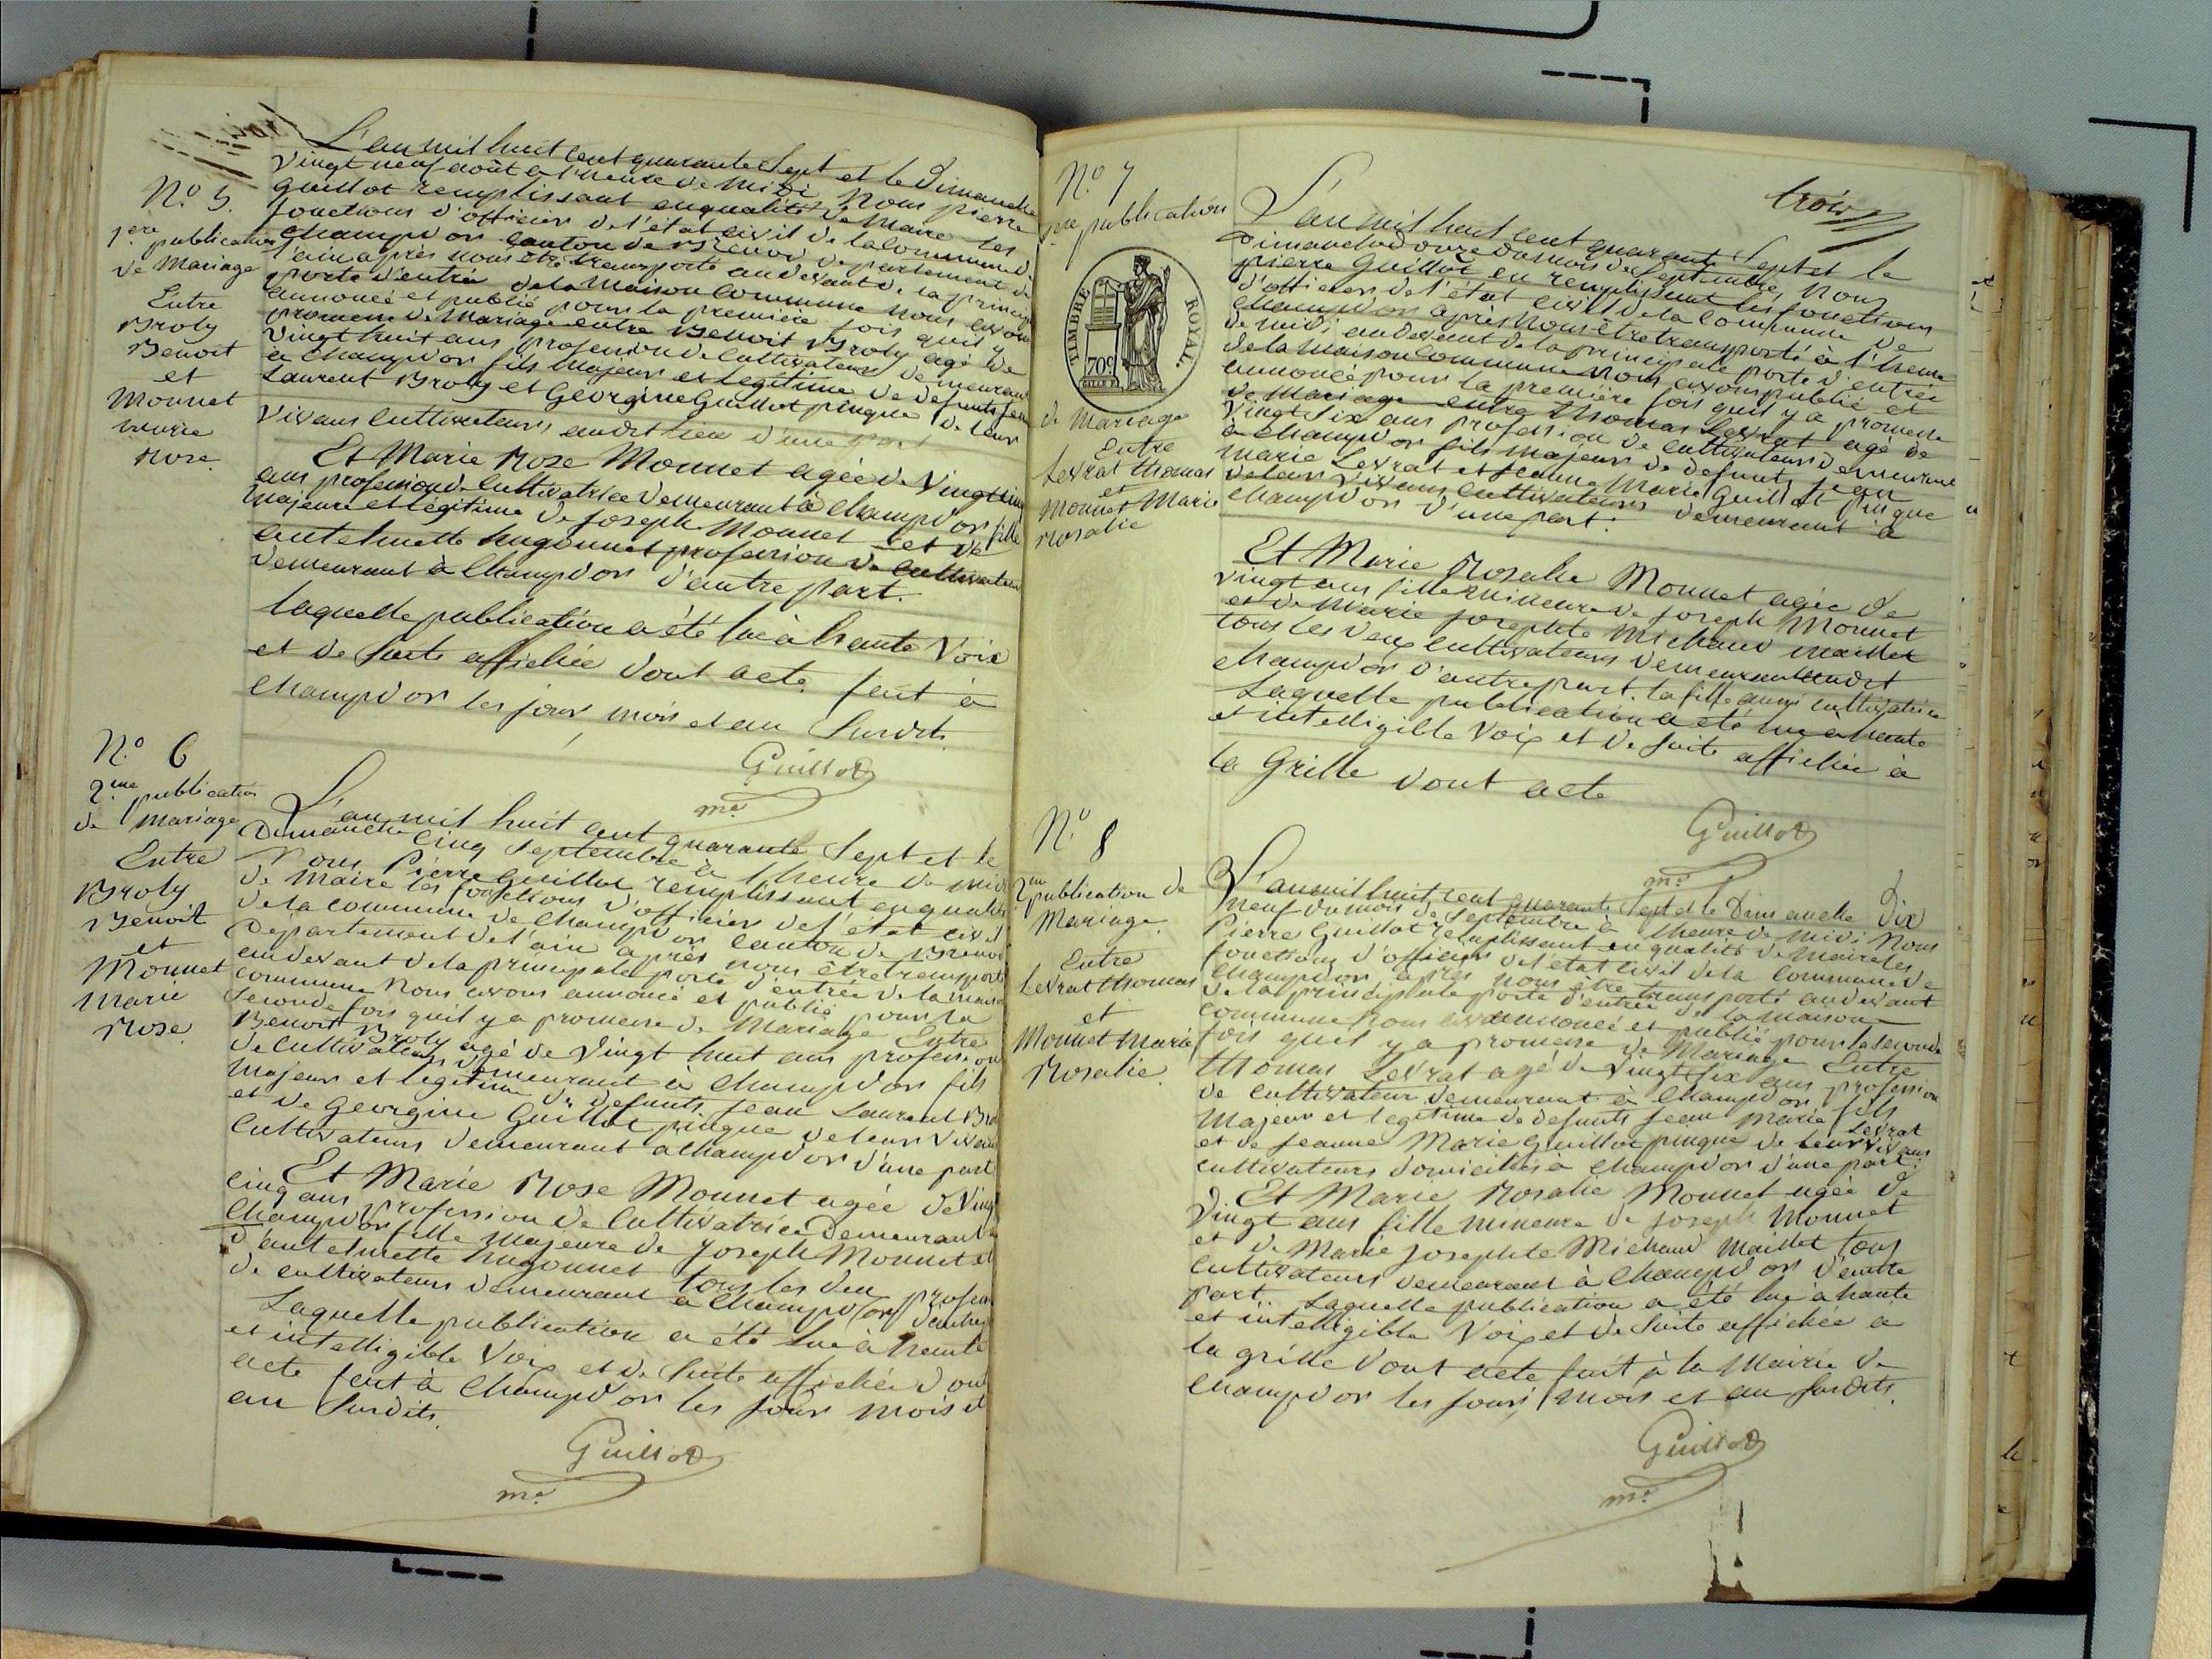 N.o 5.
1.ère
publication
de Mariage
Entre
Broly
Benoit
et
Monnet
marie
Rose.
L'an mil huit cent quarante Sept et le Dimanche
vingt neuf août à l'heure de Midi Nous pierre
Guillot remplissant en qualité de Maire les
fonctions d'officier de l'état civil de la commune de
Champd'or canton de Brenod departement de
l'ain après nous être transporté au devant de la princip
porte d'entrée de la Maison Commune nous avons
annoncé et publié pour la première fois quil y a
promesse de Mariage entre Benoit Broly agé de
vingt huit ans profession de Cultivateur demeurant
à Champd'or fils majeur et legitime de defunts jean
Laurent Broly et Georgine Guillot pingue de leur
vivans Cultivateurs audit lieu d'une part
Et Marie Rose Monnet agée de Vingt cinq
ans profession de Cultivatrice demeurant à Champd'or fille
majeure et legitime de joseph Monnet et de
antelmette hugonnet profession de Cultivateurs
demeurant à Champd'or d'autre part.
laquelle publication a été lue à haute Voix
et de suite affichée dont acte fait à
Champd'or les jour, mois et an Susdits.
Guillot
m.e
N.o 6
2.me publication
de Mariage
Entre
Broly
Benoit
et
Monnet
Marie
Rose.
L'an mil huit cent quarante Sept et le
Dimanche Cinq Septembre à l'heure de midi
Nous Pierre Guillot remplissant en qualité
de Maire les fonctions d'officier de l'état civil
de la commune de Champd'or Canton de Brenod
Département de l'ain après nous être transporté
au devant de la principale porte d'entrée de la maison
commune Nous avons annoncé et publié pour la
Seconde fois quil y a promesse de Mariage Entre
Benoit Broly agé de Vingt huit ans profession
de Cultivateur demeurant à Champd'or fils
Majeur et legitime de defunts jean Laurent Bro
et de Georgine Guillot pingue de leur vivans
Cultivateurs demeurant a Champd'or d'une part
Et Marie Rose Monnet agée de Vingt
cinq ans profession de Cultivatrice demeurant
Champd'or fille majeure de joseph Monnet et
d'antelmette hugonnet tous les deu profession
de cultivateurs demeurant à Champd'or d'autre
Laquelle publication a été lue à haute
et intelligible Voix et de Suite affichée dont
acte fait à Champd'or les jour mois et
an Susdits.
Guillot
m.e
trois
N.o 7
1.re publication
TIMBRE ROYAL.
70c
de Mariage
Entre
Levrat thomas
et
Monnet Marie
Rosalie
L'an mil huit cent quarante Sept et le
Dimanche douze du mois de Septembre, Nous
pierre Guillot en remplissant les fonctions
d'officier de l'état civil de la Commune de
Champd'or après Nous être transporté à l'heure
de midi au devant de la principale porte d'entrée
de la Maison Commune Nous avons publié et
annoncé pour la première fois quil y a promesse
de Mariage entre thomas Levrat agé de
Vingt Six ans profession de cultivateur demeurant
à Champd'or fils majeur de defunts jean
marie Levrat et jeanne Marie Guillot pingue
de leur vivans Cultivateurs demeurant à
Champd'or d'une part:
Et Marie Rosalie Monnet agée de
vingt ans fille mineure de joseph Monnet
et de Marie josephte Michaud maillet
tous les deux Cultivateurs demeurant audit
Champd'or d'autre part. la fille aussi cultivatrice
Laquelle publication a été lue à haute
et intelligible Voix et de Suite affichée à
la Grille dont acte
Guillot
m.e
N.o 8
2.me
publication de
Mariage.
Entre
Levrat thomas
et
Monnet Marie
Rosalie.
L'an mil huit cent quarante Sept et le Dimanche Dix
neuf du mois de Septembre à l'heure de Midi Nous
Pierre Guillot remplissant en qualité de Maire les
fonctions d'officier de l'état civil de la Commune de
Champd'or après nous être transporté au devant
de la principale porte d'entrée de la maison
commune, Nous avons annoncé et publié pour la seconde
fois quil y a promesse de Mariage Entre
thomas Levrat agé de vingt Six ans profession
de cultivateur demeurant à Champd'or fils
Majeur et legitime de defunts jean Marie Levrat
et de jeanne Marie Guillot pingue de leur vivans
cultivateurs domiciliés à Champd'or d'une part:
Et Marie Rosalie Monnet agée de
vingt ans fille mineure de joseph Monnet
et de Marie josephte Michaud Maillet tous
Cultivateurs demeurant à Champd'or d'autre
part. Laquelle publication a été lue à haute
et intelligible Voix et de Suite affichée à
la grille dont acte fait à la Mairie de
Champd'or les jour, mois et an susdits.
Guillot
m.e